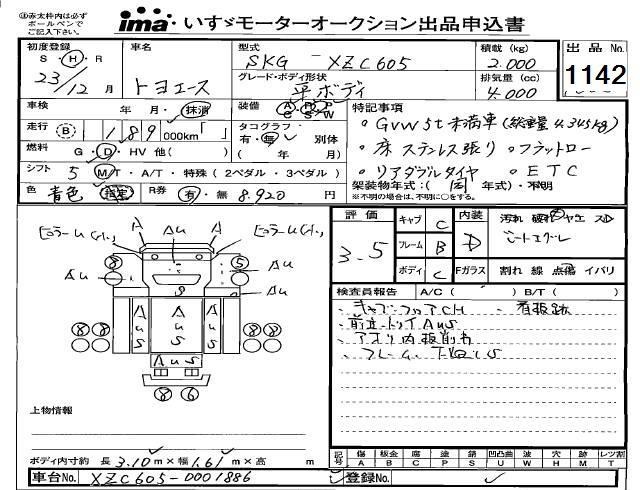 ㊟赤太枠内は必ず
ボールペンで
ご記入下さい。
ima いすゞモーターオークション出品申込書
初度登録
S・H・R
23/12月
車名
トヨエース
型式
SKG XZC605
グレード・ボディ形状
平ボディ
積載(kg)
2.000
排気量(cc)
4.000
出品No.
1142
車検 年 月・抹消
装備 A P W
特記事項
走行 B 189 000km「 」
タコグラフ
有・無 別体
( 年 月)
燃料 G・D・HV 他( )
シフト 5 M T・A/T・特殊(2ペダル・3ペダル)
色 青色 指定 R券 有・無 8.920 円
。GVW5t未満車(総重量4.345kg)
。床ステンレス張り 。フラットロー
。リアダブルタイヤ 。ETC
架装物年式:( 同 年式)・不明
※不明の場合は、不明に○をする。
評価
3.5
キャブ C 内装 D
フレーム B
ボディ C Fガラス
汚れ 破れ ヤエ スD
割れ 線 点傷 イバリ
検査員報告 A/C( ) B/T( )
キャブ・フロアCH 看板跡
前立・トリイAUS
アオリ内板削れ
フレーム・下廻りS
AU A A AU
8 5
AU AU
8 8 AUS AUS AUS 8 8
AUS
8 6
上物情報
ボディ内寸約 長 3.10 m×幅 1.61 m×高 m
記号 傷 板金 腐 塗 錆 凹凸曲 波 穴 跡 レツ割
A B C P S U W H M T
車台No. XZC605-0001886
登録No.